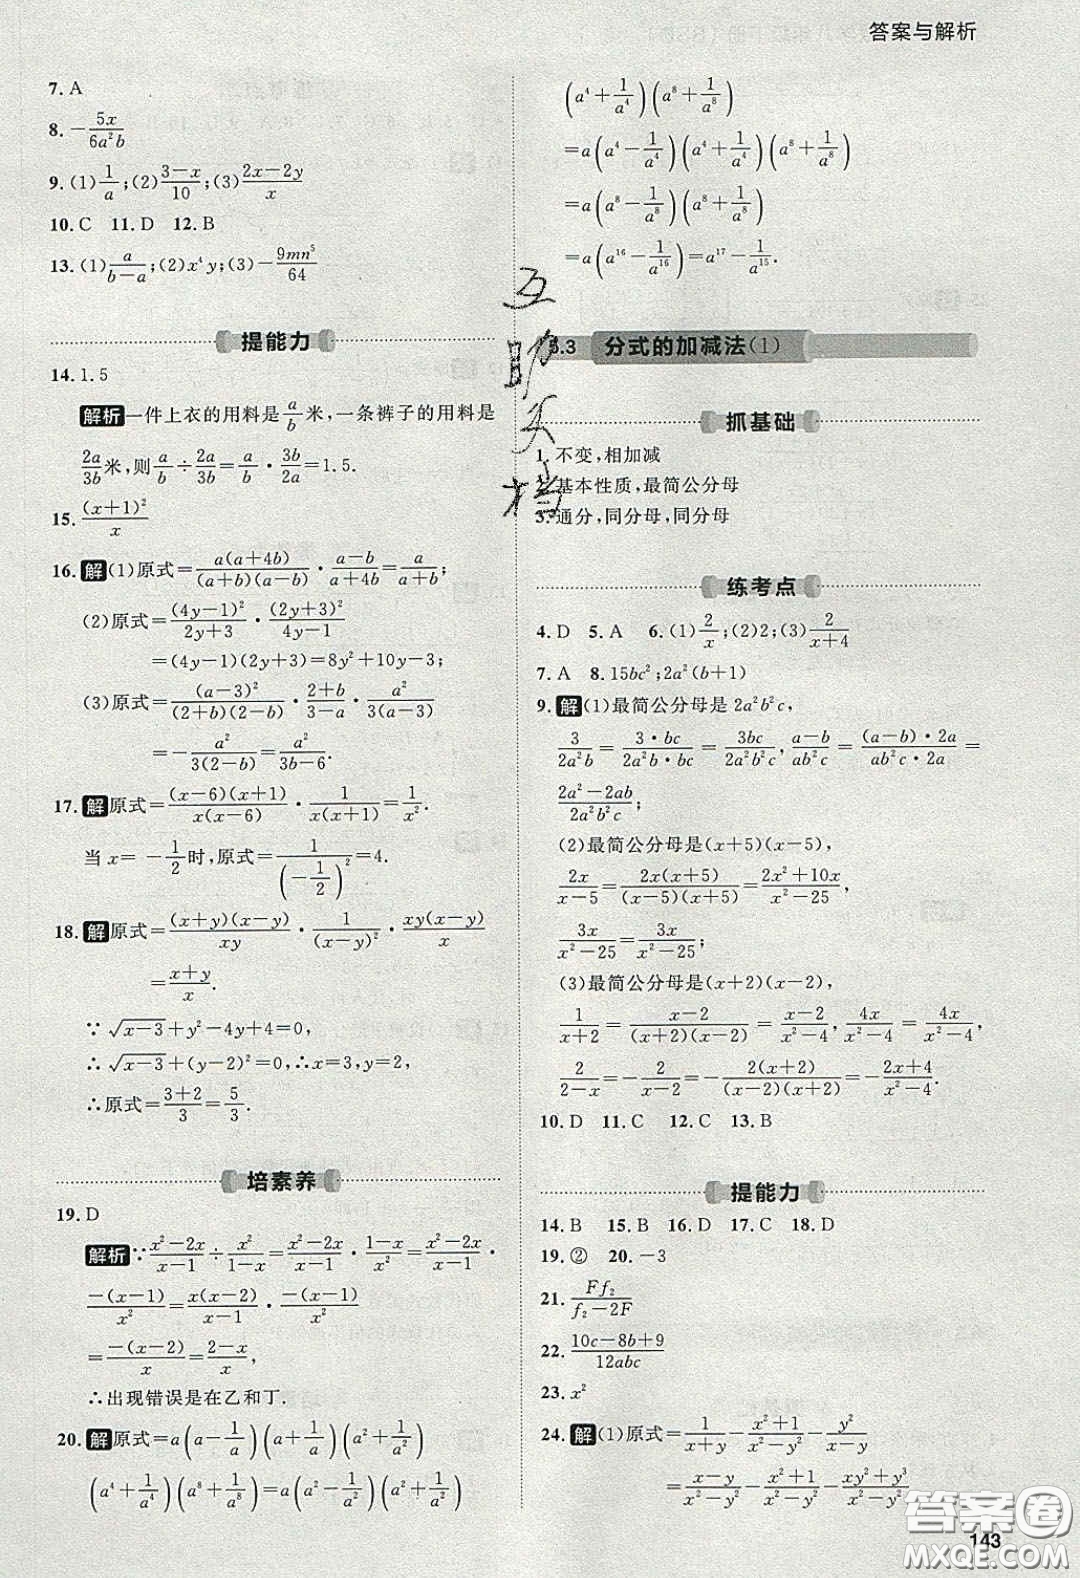 答案与解析
7. A
8. -5x/6a²b
9. (1)1/a;(2)(3-x)/10;(3)(2x-2y)/x
10. C 11. D 12. B
13. (1)a/(b-a);(2)x⁴y;(3)-9mn⁵/64
提能力
14. 1.5
解析 一件上衣的用料是a/b米,一条裤子的用料是
2a/3b米,则a/b÷2a/3b=a/b·3b/2a=1.5.
15. (x+1)²/x
16. 解 (1)原式=a(a+4b)/(a+b)(a-b)·(a-b)/(a+4b)=a/(a+b);
(2)原式=(4y-1)²/(2y+3)·(2y+3)²/(4y-1)
=(4y-1)(2y+3)=8y²+10y-3;
(3)原式=(a-3)²/(2+b)(2-b)·(2+b)/(3-a)·a²/3(a-3)
=-a²/3(2-b)=a²/(3b-6).
17. 解 原式=(x-6)(x+1)/x(x-6)·1/x(x+1)=1/x².
当x=-1/2时,原式=1/(-1/2)²=4.
18. 解 原式=(x+y)(x-y)/xy·1/(x-y)²·xy(x-y)/x
=(x+y)/x.
∵√(x-3)+y²-4y+4=0,
∴√(x-3)+(y-2)²=0,∴x=3,y=2,
∴原式=(3+2)/3=5/3.
培素养
19. D
解析 ∵(x²-2x)/(x-1)÷x²/(1-x)=(x²-2x)/(x-1)·(1-x)/x²=(x²-2x)/(x-1)·
-(x-1)/x²=x(x-2)/(x-1)·-(x-1)/x²
=-(x-2)/x=(2-x)/x,
∴出现错误是在乙和丁.
20. 解 原式=a(a-1/a)(a+1/a)(a²+1/a²)
(a⁴+1/a⁴)(a⁸+1/a⁸)=a(a²-1/a²)(a²+1/a²)
(a⁴+1/a⁴)(a⁸+1/a⁸)
=a(a⁴-1/a⁴)(a⁴+1/a⁴)(a⁸+1/a⁸)
=a(a⁸-1/a⁸)(a⁸+1/a⁸)
=a(a¹⁶-1/a¹⁶)=a¹⁷-1/a¹⁵.
5.3 分式的加减法(1)
抓基础
1. 不变,相加减
2. 基本性质,最简公分母
3. 通分,同分母,同分母
练考点
4. D 5. A 6. (1)2/x;(2)2;(3)2/(x+4)
7. A 8. 15bc²;2a²(b+1)
9. 解 (1)最简公分母是2a²b²c,
3/2a²b=3·bc/2a²b·bc=3bc/2a²b²c,(a-b)/ab²c=(a-b)·2a/ab²c·2a=
(2a²-2ab)/2a²b²c;
(2)最简公分母是(x+5)(x-5),
2x/(x-5)=2x(x+5)/(x-5)(x+5)=(2x²+10x)/(x²-25),
3x/(x²-25)=3x/(x²-25);
(3)最简公分母是(x+2)(x-2),
1/(x+2)=(x-2)/(x+2)(x-2)=(x-2)/(x²-4),4x/(x²-4)=4x/(x²-4),
2/(2-x)=-2/(x-2)=-2(x+2)/(x-2)(x+2)=-(2x+4)/(x²-4).
10. D 11. C 12. C 13. B
提能力
14. B 15. B 16. D 17. C 18. D
19. ② 20. -3
21. Ff₂/(f₂-2F)
22. (10c-8b+9)/12abc
23. x²
24. 解 (1)原式=1/(x+y)-(x²+1)/(x²-y²)-y²/(x-y)
=(x-y)/(x²-y²)-(x²+1)/(x²-y²)-(xy²+y³)/(x²-y²)
143
互助文档
答案圈
MXQE.COM